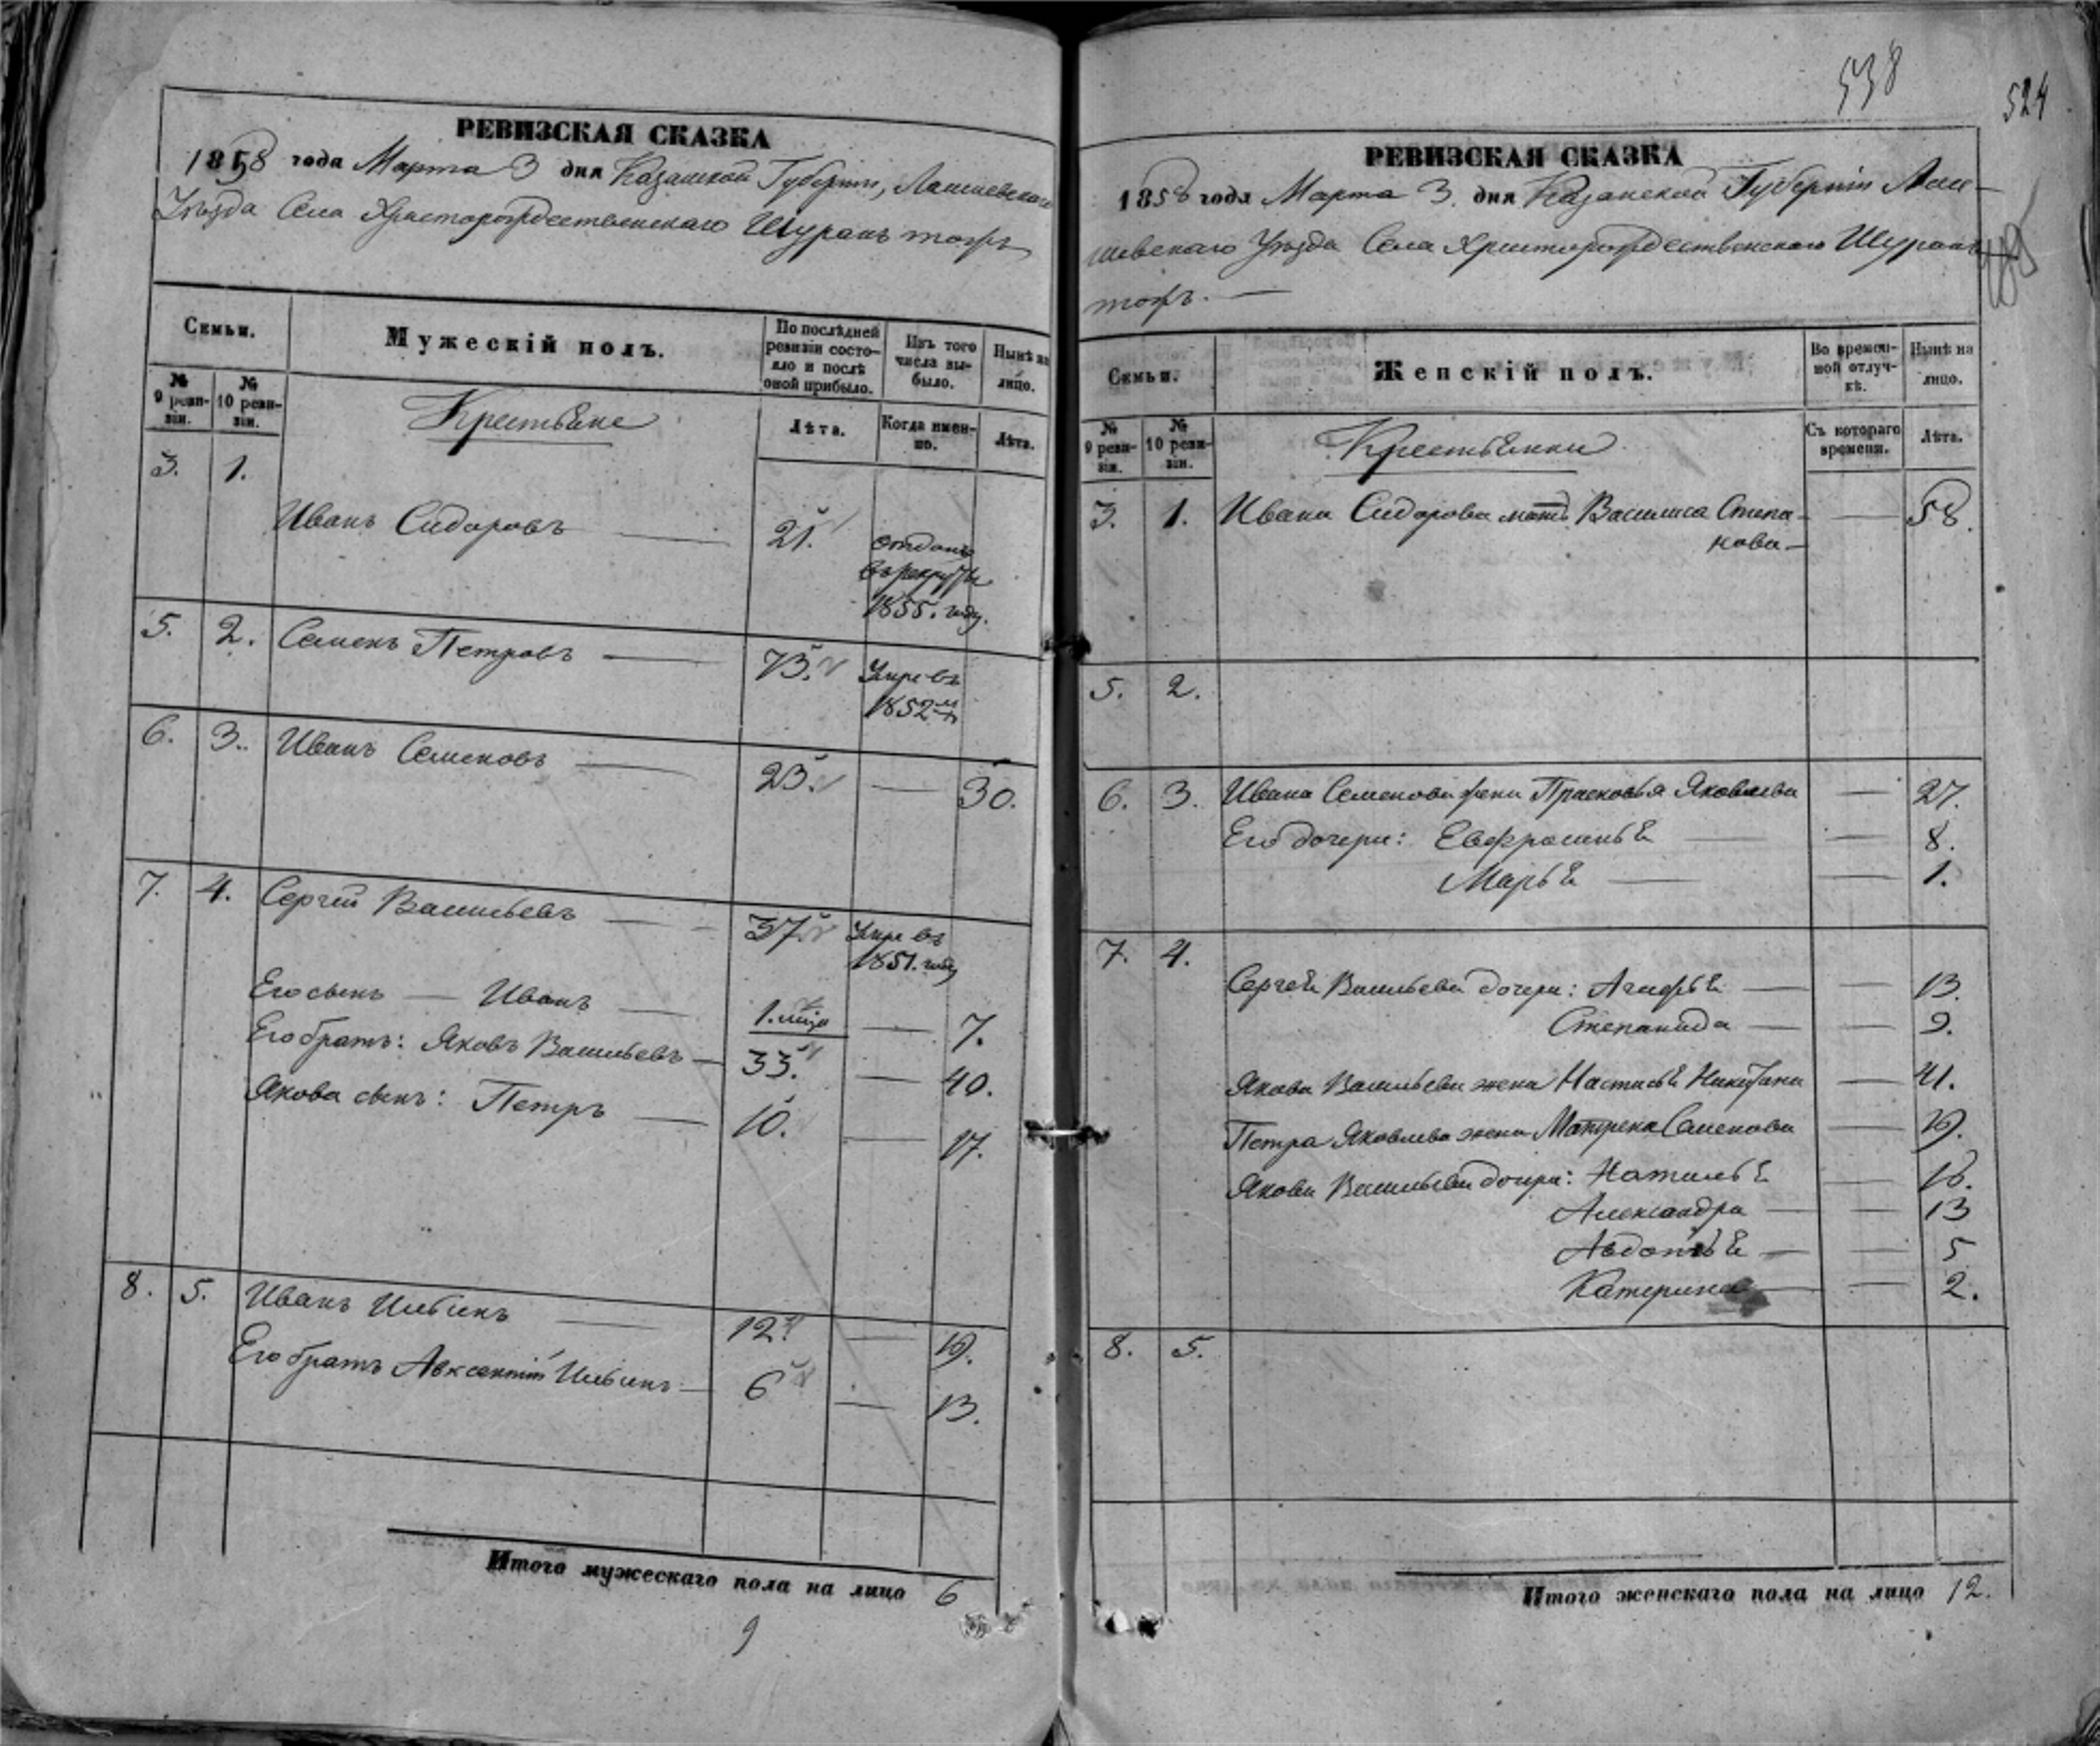 РЕВИЗСКАЯ СКАЗКА
1858 года Марта 3 дня Казанской Губерніи, Лаишевскаго
Уѣзда Села Христорождественскаго Шуранъ тожъ
Семьи.
Мужескій полъ.
По послѣдней ревизіи состояло и послѣ оной прибыло.
Изъ того числа выбыло.
Нынѣ на лицо.
№ 9 ревизіи.
№ 10 ревизіи.
Крестьяне
Лѣта.
Когда именно.
Лѣта.
3. 1.
Иванъ Сидоровъ — 21. отданъ
въ рекруты
1855. году.
5. 2. Семенъ Петровъ — 73. Умре въ
1852 мъ
6. 3. Иванъ Семеновъ — 23. — 30.
7. 4. Сергѣй Васильевъ — 37. Умре въ
1851. году
Его сынъ — Иванъ — 1. — 7.
Его братъ: Яковъ Васильевъ — 33. — 40.
Якова сынъ: Петръ — 10. — 17.
8. 5. Иванъ Ильинъ — 12. — 19.
Его братъ Авксентій Ильинъ — 6 — 13.
Итого мужескаго пола на лицо 6
9
538
524
РЕВИЗСКАЯ СКАЗКА
1858 года Марта 3. дня Казанской Губерніи Лаи-
шевскаго Уѣзда Села Христорождественскаго Шуранъ
тожъ. —
Семьи.
Женскій полъ.
Во временной отлучкѣ.
Нынѣ на лицо.
№ 9 ревизіи.
№ 10 ревизіи.
Крестьянки
Съ котораго времени.
Лѣта.
3. 1. Ивана Сидорова мать Василиса Степа- — 58.
нова —
5. 2.
6. 3. Ивана Семенова жена Прасковья Яковлева — 27.
Его дочери: Евфросинья — — 8.
Марья — — 1.
7. 4.
Сергея Васильева дочери: Агафья — — 13.
Степанида — — 9.
Якова Васильева жена Настасья Никитина — 41.
Петра Яковлева жена Матрена Семенова — 19.
Якова Васильева дочери: Наталья — 16.
Александра — — 13
Авдотья — — 5
Катерина — — 2.
8. 5.
Итого женскаго пола на лицо 12.